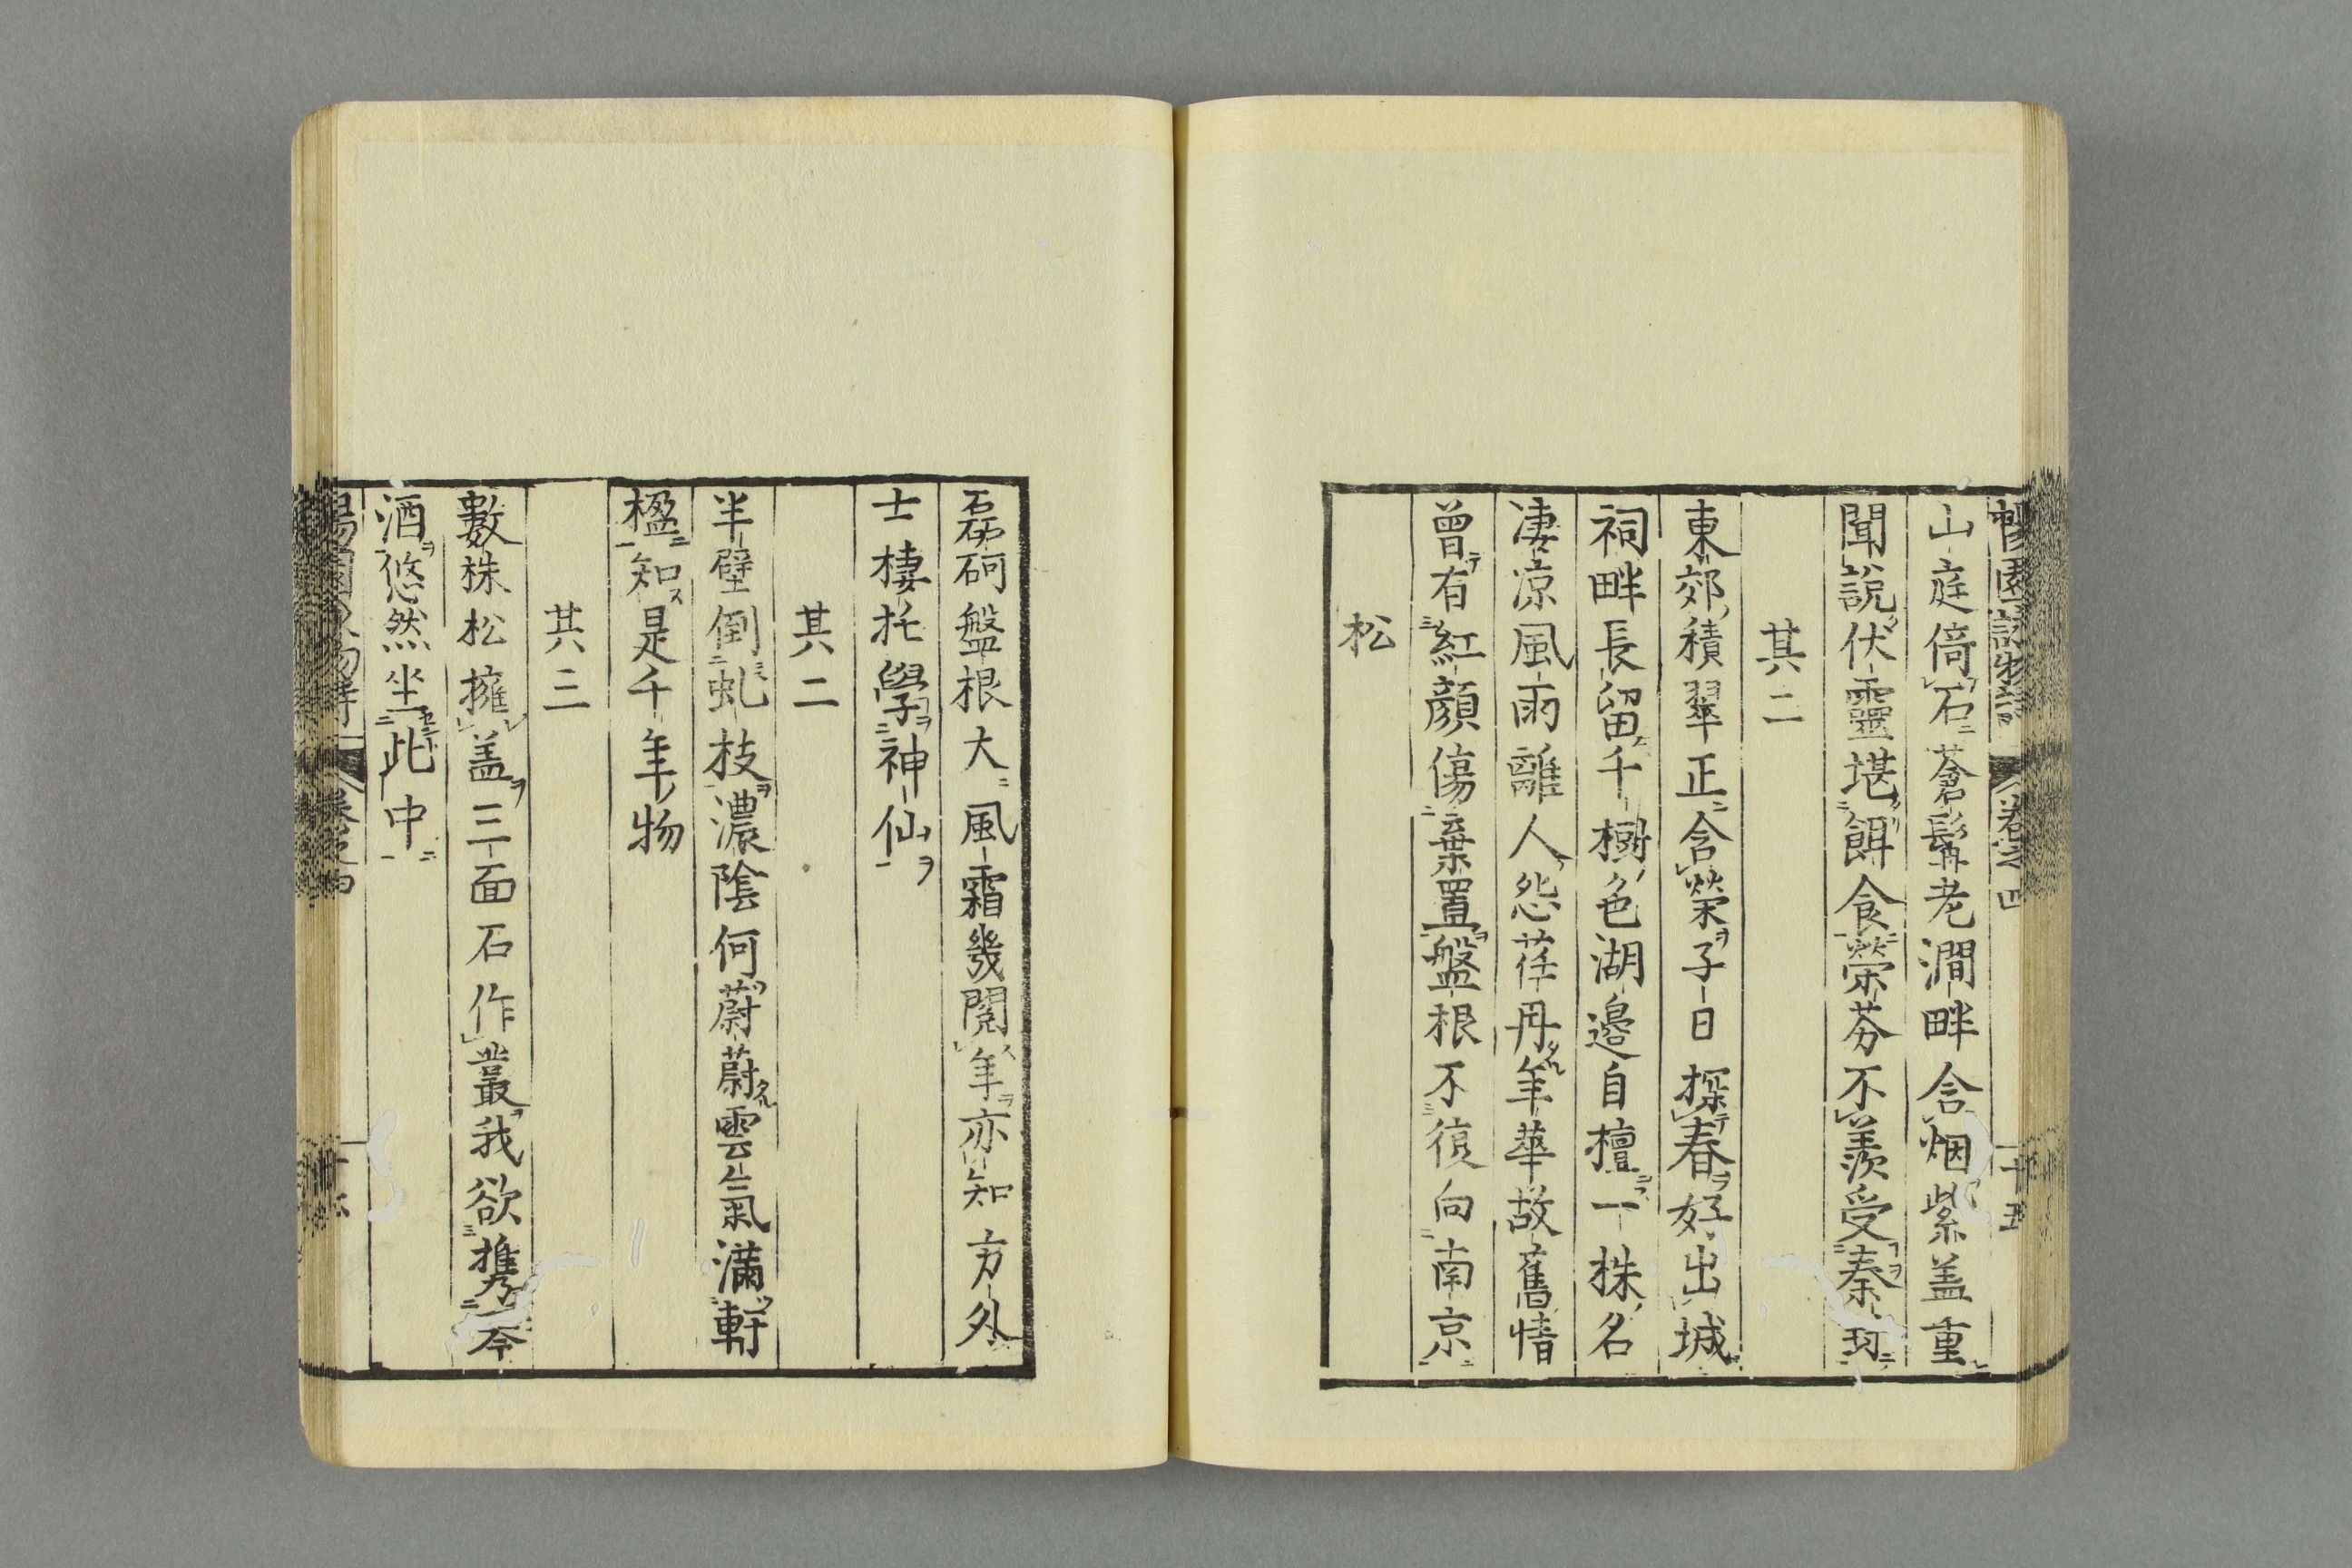 暢園詠物詩 卷之四 十五
山庭倚石蒼髯老澗畔含烟紫盖重
聞說伏靈堪餌食榮芬不羨受秦封
其二
東郊積翠正含榮子日探春好出城
祠畔長留千樹色湖邉自擅一株名
凄凉風雨離人怨荏苒年華故舊情
曾有紅顏傷棄置盤根不復向南京
松
磊砢盤根大風霜幾閱年亦知方外
士棲托學神仙
其二
半壁倒虬枝濃陰何蔚蔚雲氣滿軒
楹知是千年物
其三
數株松擁盖三面石作叢我欲携今
酒悠然坐此中
卷之四